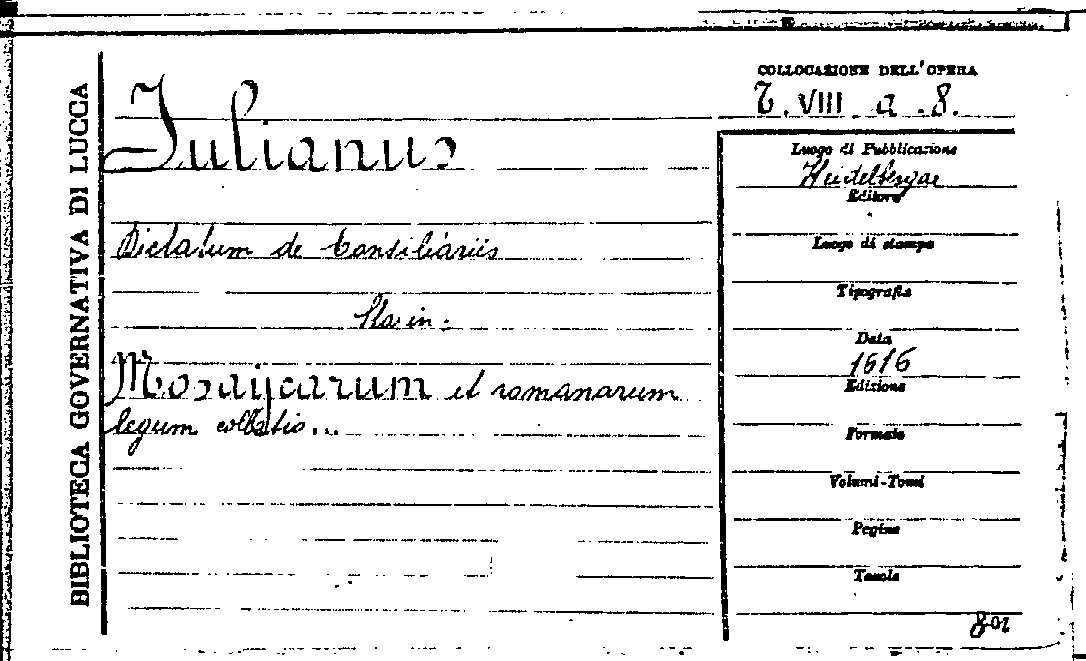 BIBLIOTECA GOVERNATIVA DI LUCCA
COLLOCAZIONE DELL'OPERA
T. VIII. a. 8.
Iulianus
Dictatum de Consiliariis
Sta in:
Mosaycarum et romanarum
legum collatio...
Luogo di Pubblicazione
Heidelbergae
Editore
Luogo di stampa
Tipografia
Data
1616
Edizione
Formato
Volumi-Tomi
Pagine
Tavole